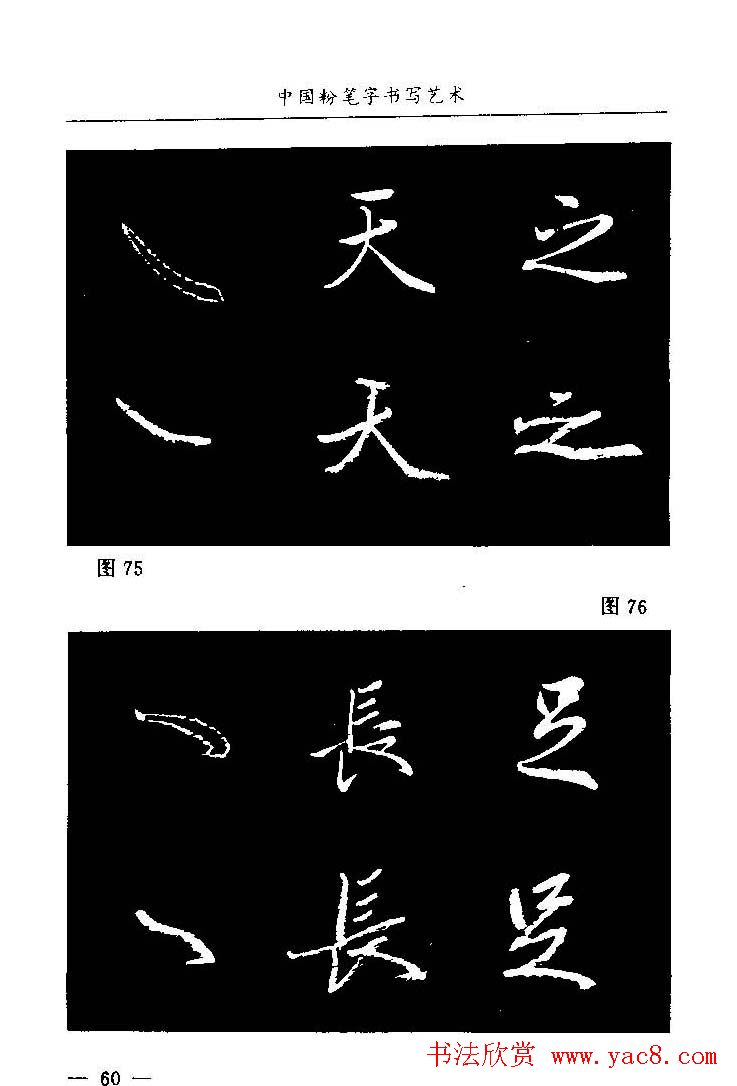 中国粉笔字书写艺术
天 之
天 之
图 75
图 76
長 足
長 足
书法欣赏 www.yac8.com
— 60 —